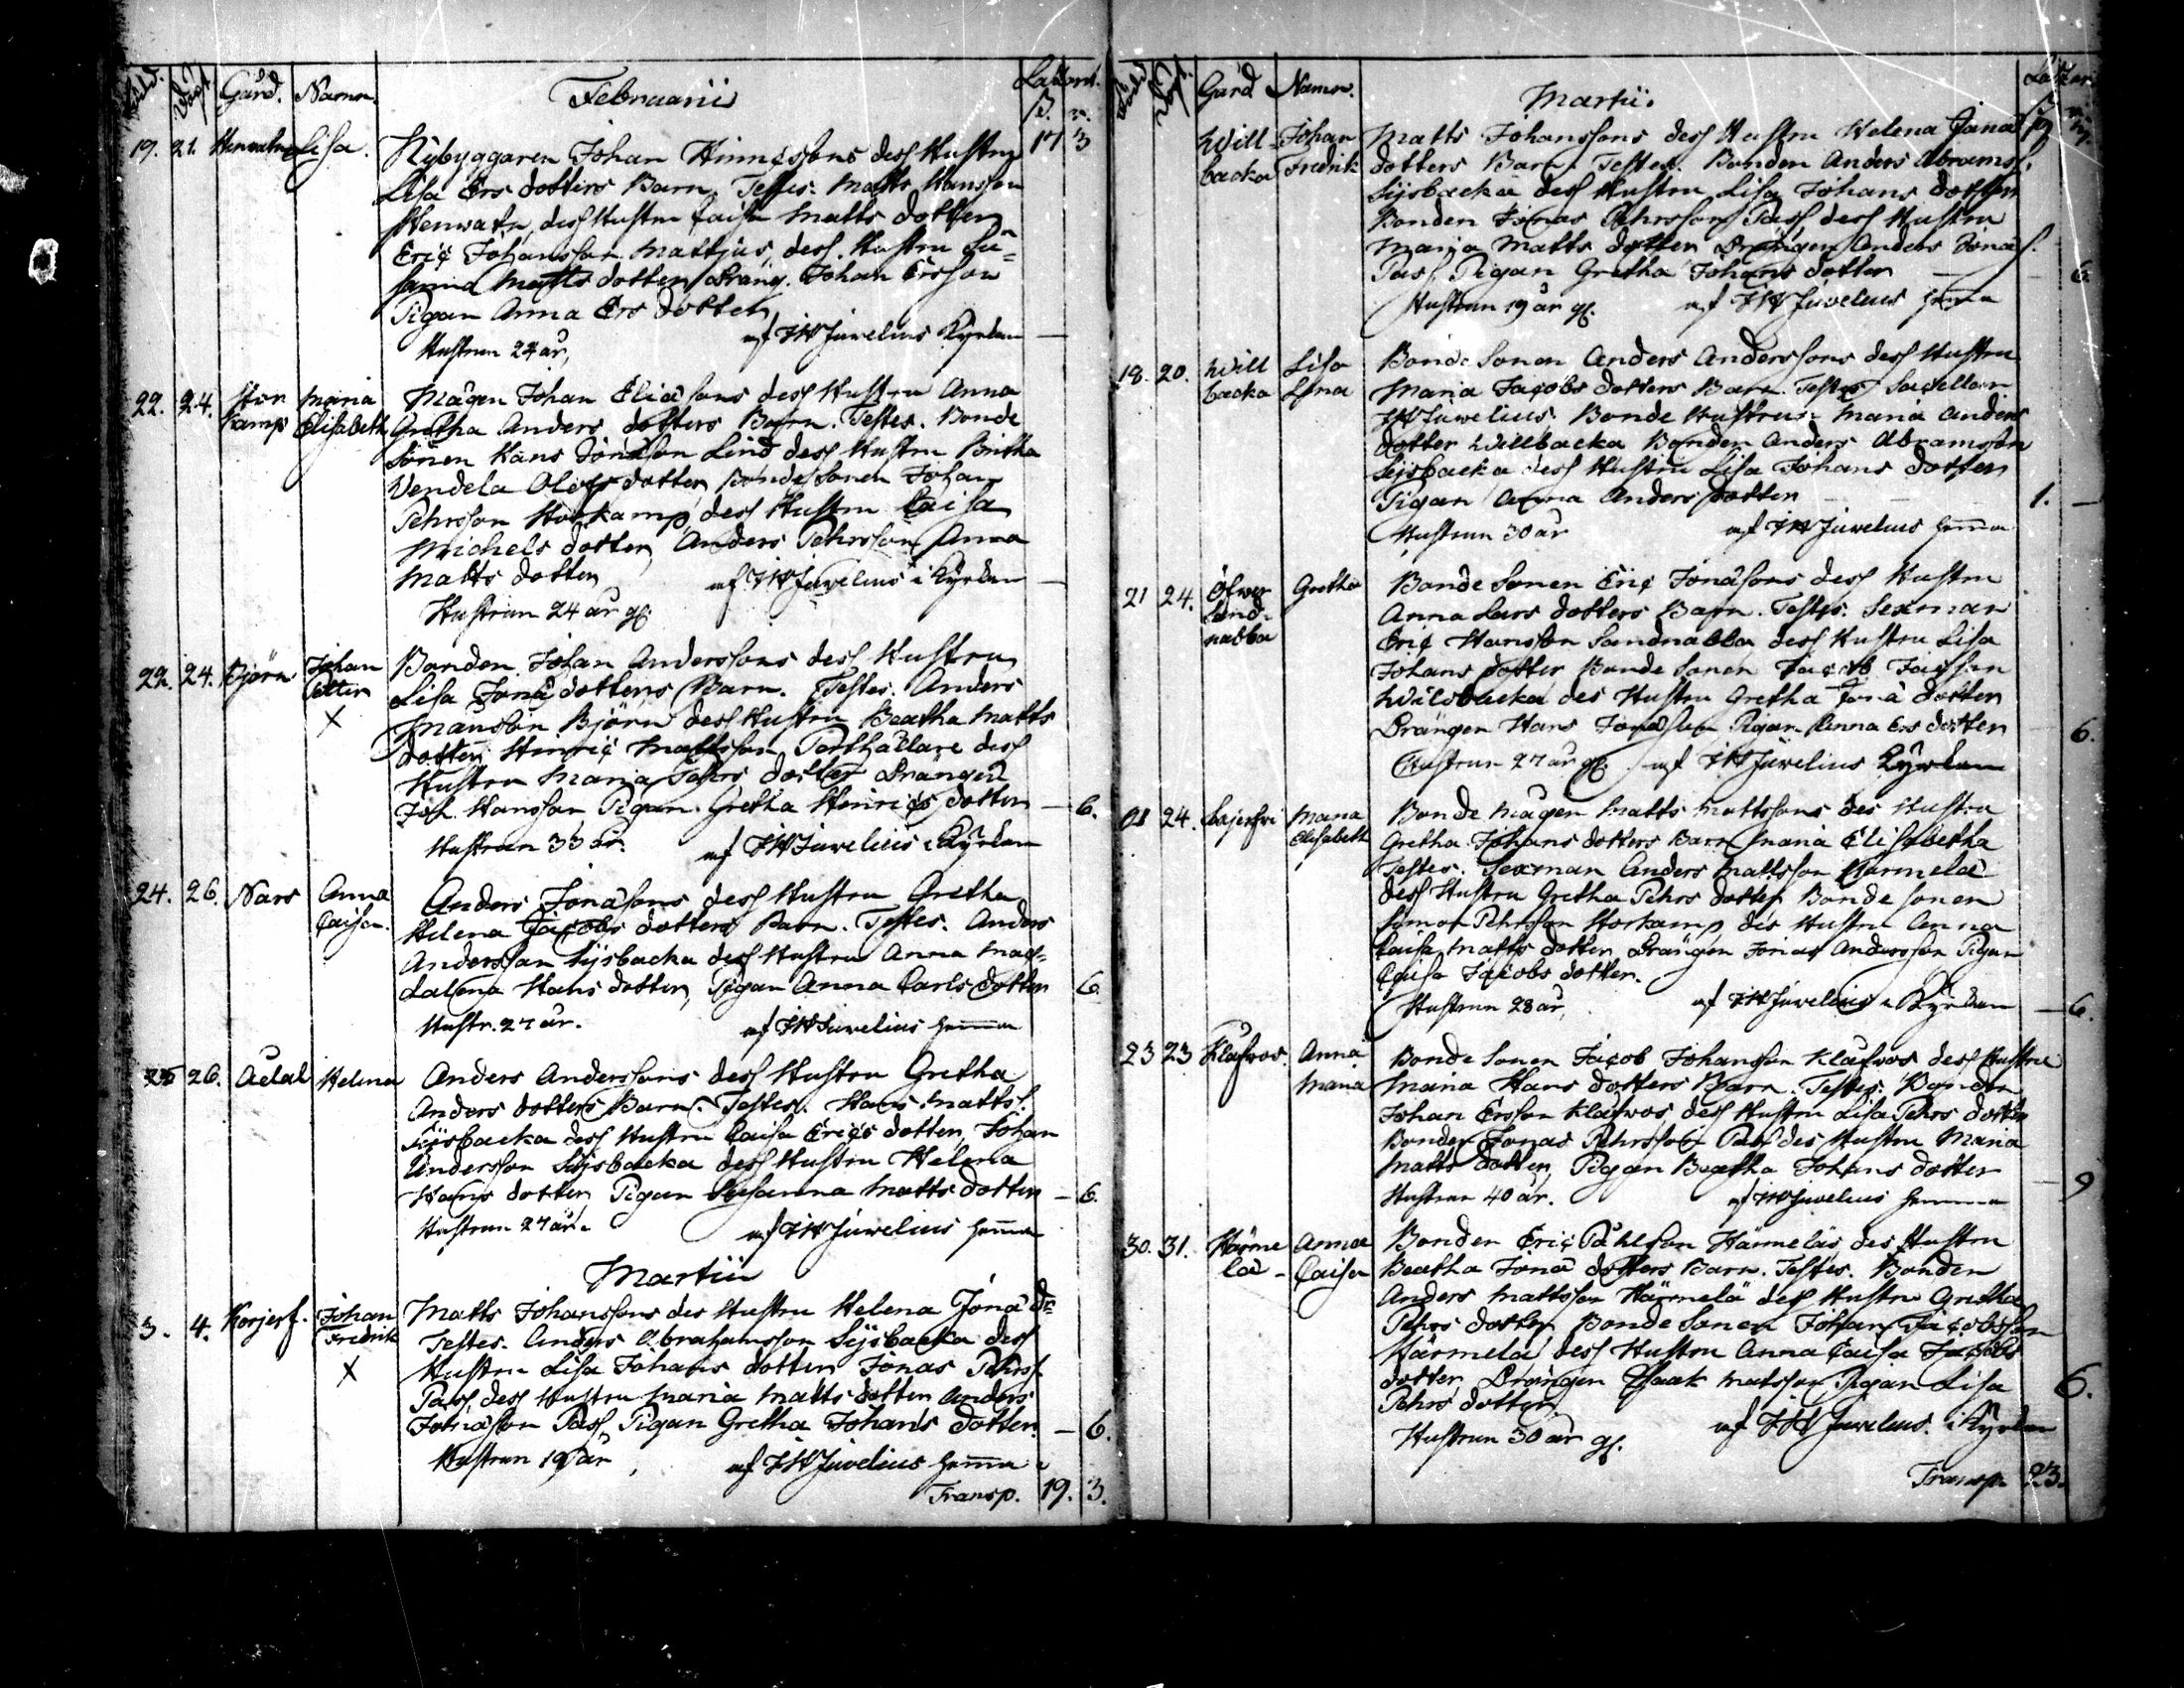 Född. Döpt. Gård. Namn. Februarii Lazaret.
ß. r.
19. 21. Stenwatn Lisa. Nybyggaren Johan Hinricssons dess Hustru 17 3
Lisa Ers dotters Barn. Testes. Matts Hansson
Stenwatn, dess Hustru Caisa Matts dotter,
Eric Johansson Mattjus, dess Hustru Su=
sanna Matts dotter, Dräng. Johan Ersson
Pigan Anna Ers dotter
Hustrun 24 år, af JH Juvelius Kyrkan —
22. 24. Stor Maria Mågen Johan Eliæ sons dess Hustru Anna
kamp Elisabeth Gretha Anders dotters Barn. Testes. Bonde
Sonen Hans Jonæson Lind dess Hustru Britha
Vendela Olofs dotter, Bonde Sonen Johan
Pehrsson Storkamp, dess Hustru Caisa
Michels dotter, Anders Pehrsson, Anna
Matts dotter, af JH Juvelius i Kyrkan —
Hustrun 24 år gl.
22. 24. Björn Johan Bonden Johan Anderssons dess Hustru
Petter Lisa Jonæ dotters Barn. Testes. Anders
X Mansson Björn dess Hustru Beatha Matts
dotter, Hinric Mattsson, Porthållare dess
Hustru Maria Pehrs dotter Drängen
Joh. Hansson Pigan. Gretha Henrics dotter — 6.
Hustrun 33 år. af JH Juvelius i Kyrkan
24. 26. Nars Anna Anders Jonæsons dess Hustru Gretha
Caisa. Helena Jacobs dotters Barn. Testes. Anders
Andersson Sijsbacka dess Hustru Anna Mag=
dalena Hans dotter, Pigan Anna Carls dotter 6
Hustr. 27 år. af JH Juvelius hemma
25 26. Aedal Helena Anders Anderssons dess Hustru Gretha
Anders dotters Barn. Testes. Hans Matts.
Sijsbacka dess Hustru Caisa Erics dotter, Johan
Andersson Sijsbacka dess Hustru Helena
Hans dotter, Pigan Susanna Matts dotter — 6.
Hustrun 27 år. af JH Juvelius hemma
Martii
3. 4. Korjerf. Johan Matts Johanssons des Hustru Helena Jonæ dr
Fredrik Testes. Anders Abrahamsson Sijsbacka dess
X Hustru Lisa Johans dotter, Jonas Pehrs.
Pass, dess Hustru Maria Matts dotter Anders
Jonæson Pass, Pigan Gretha Johans dotter. — 6.
Hustrun 19 år, af JH Juvelius hemma
Transp. 19. 3.
Född Döpt. Gård Namn. Martii. Lazar.
Will Johan Matts Johanssons dess Hustru Helena Jonæ 19
backa Fredrik dotters Barn. Testes. Bonden Anders Abrams.
Sijsbacka dess Hustru Lisa Johans dotter
Bonden Jonas Pehrsson Pass dess Hustru
Maria Matts dotter Drängen Anders Jonæ s.
Pass, Pigan Gretha Johans dotter — 6.
Hustrun 19 år gl. af JH Juvelius hemma
18. 20. Will Lisa Bonde Sonen Anders Anderssons dess Hustru
backa Lena Maria Jacobs dotters Barn. Testes Sacellan
JH Juvelius, Bonde Hustrun Maria Anders
dotter Willbacka Bonden Anders Abramsson
Sijsbacka dess Hustru Lisa Johans dotter
Pigan Anna Anders dotter 1. —
Hustrun 30 år af JH Juvelius hemma
21 24. Öfwer Gretha Bonde Sonen Eric Jonæsons dess Hustru
Sand- Anna Lars dotters Barn. Testes. Sexman
nabba Eric Hansson Sandnabba dess Hustru Lisa
Johans dotter Bonde Sonen Jacob Jacsson
Willbacka des Hustru Gretha Jonæ dotter
Drängen Hans Jonæsson Pigan Anna Ers dotter 6.
Hustrun 27 år gl. af JH Juvelius Kyrkan
24. Maria Bonde Mågen Matts Mattssons des Hustru
Elisabeth Gretha Johans dotters Barn Maria Elisabetha
Testes. Sexman Anders Mattsson Härmelä
dess Hustru Gretha Pehrs dotter Bonde Sonen
Simon Pehrsson Storkamp, des Hustru Anna
Caisa Matts dotter Drängen Jonas Andersson Pigan
Caisa Jacobs dotter.
Hustrun 28 år, af JH Juvelius i Kyrkan — 6.
23 23 Klåfwos. Anna Bonde Sonen Jacob Johansson Klåfwos dess Hustru
Maria Maria Hans dotters Barn. Testes. Bonden
Johan Ersson Klåfwos dess Hustru Lisa Pehrs dotter
Bonden Jonas Pehrsson Pass des Hustru Maria
Matts dotter, Pigan Beatha Johans dotter
Hustrun 40 år. af JH Juvelius hemma — 9
30. 31. Härme Anna Bonden Eric Påhlson Härmeläs des Hustru
lä - Caisa Beatha Jonæ dotters Barn. Testes. Bonden
Anders Mattsson Härmelä dess Hustru Gretha
Pehrs dotter Bonde Sonen Johan Jacobsson
Härmelä dess Hustru Anna Caisa Jacobs
dotter, Drängen Isaak Matsson Pigan Lisa 6.
Pehrs dotter,
Hustrun 30 år gl. af JH Juvelius. i Kyrkan
Transp. 23.